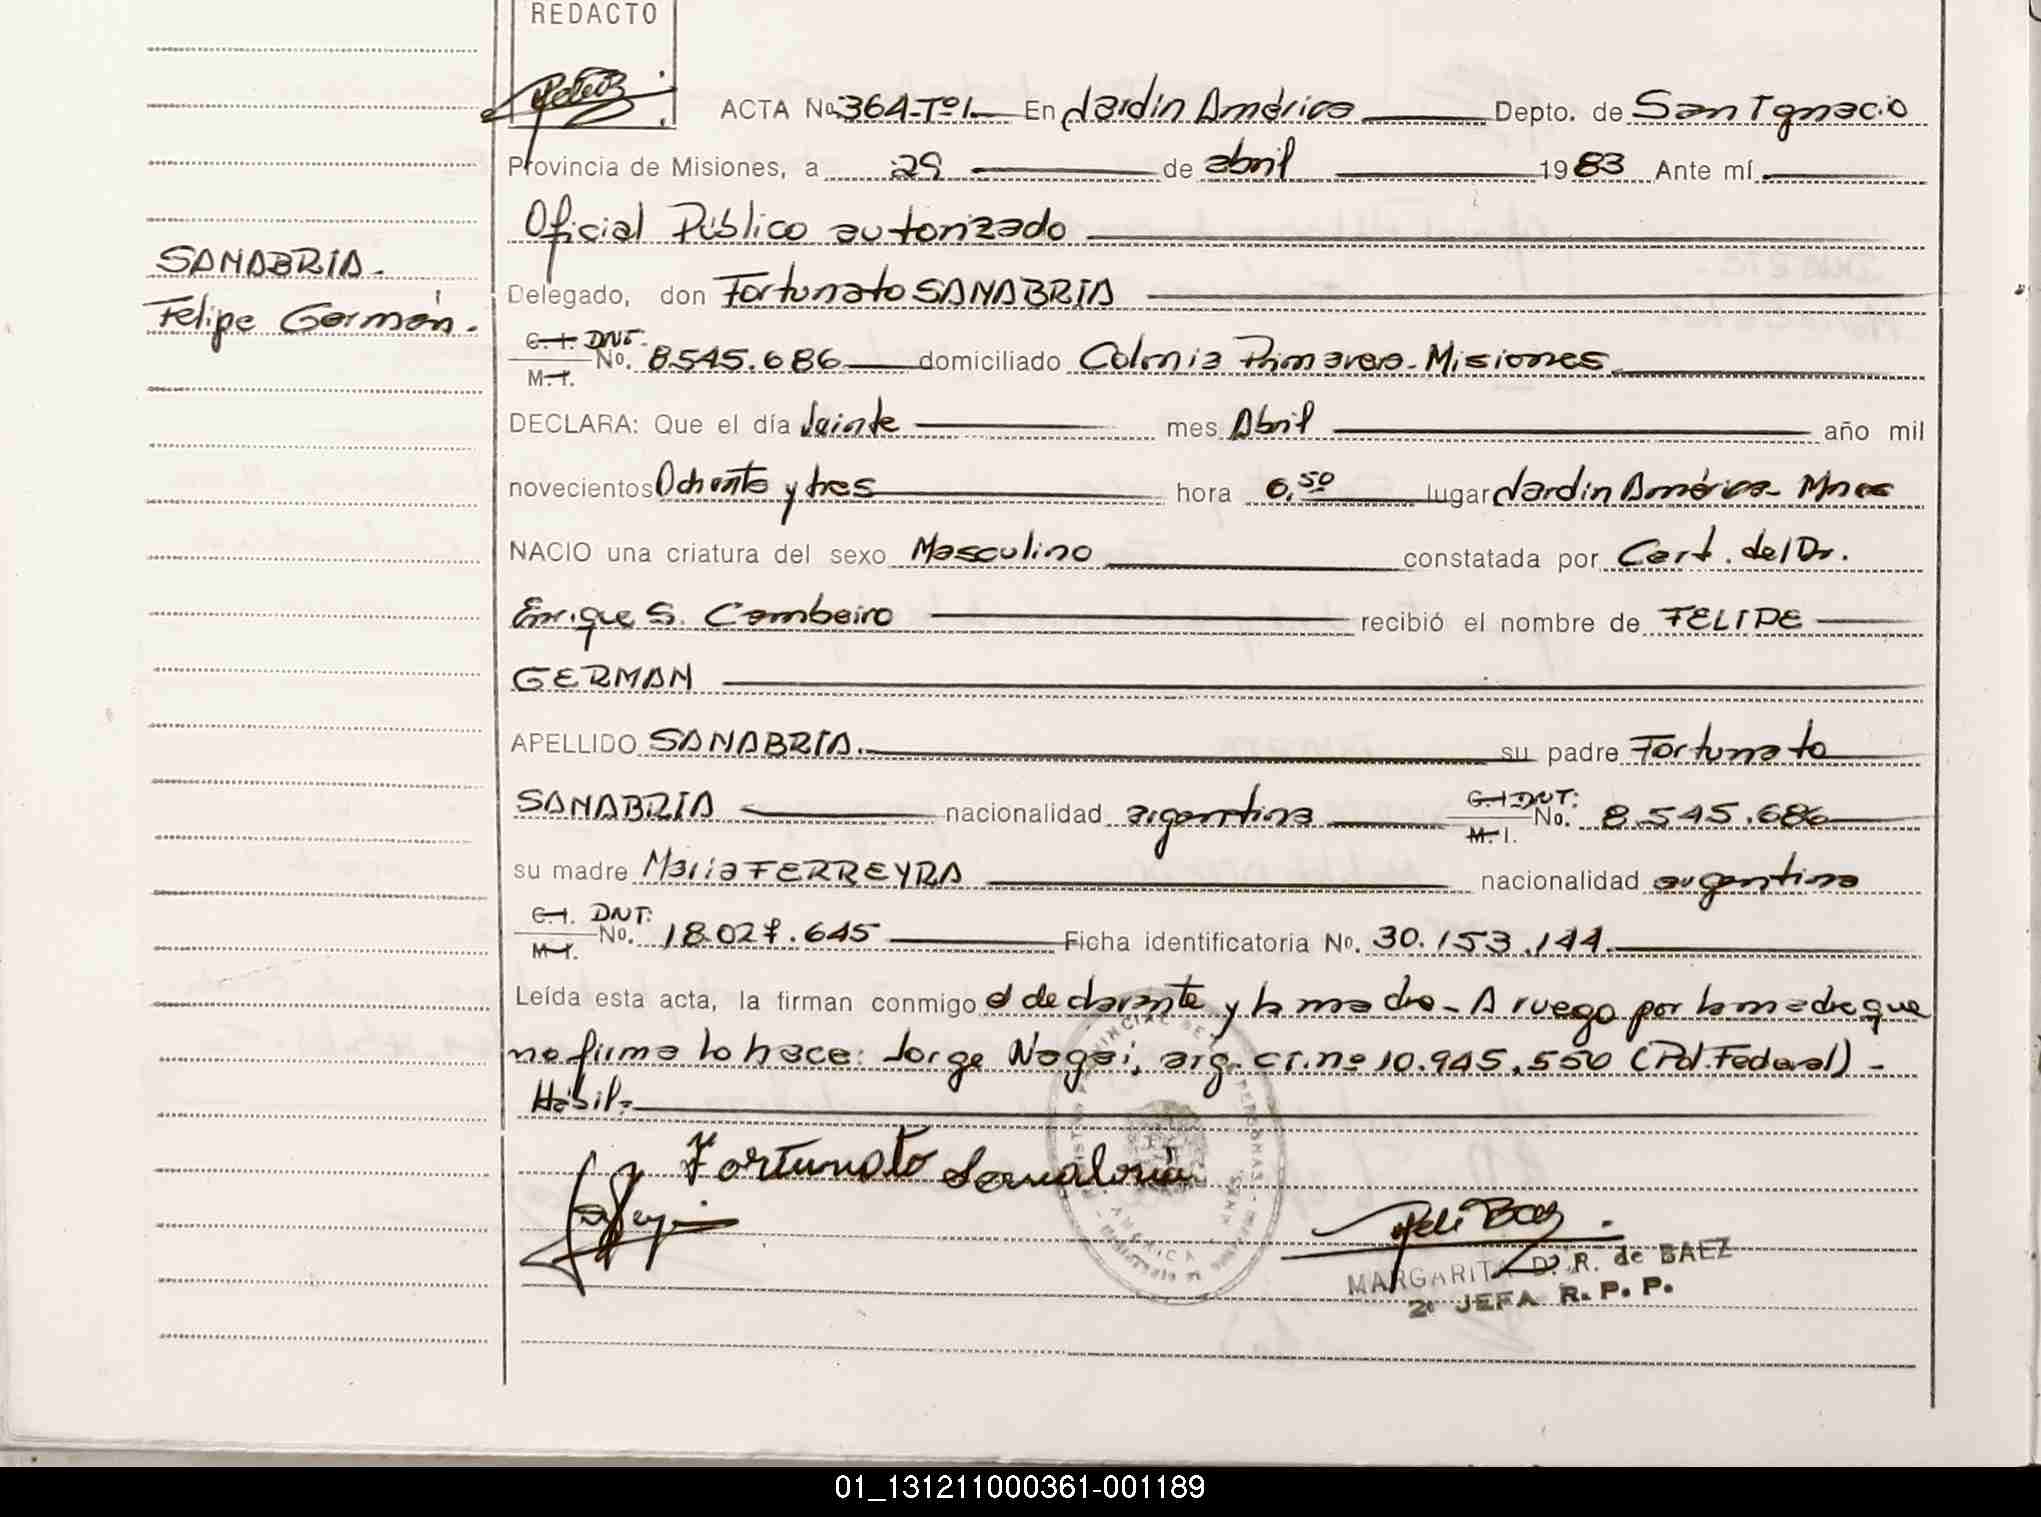 REDACTO
ACTA No. 364-Tº I En Jardín América Depto. de San Ignacio
Provincia de Misiones, a 29 de abril 1983 Ante mí
Oficial Público autorizado
SANABRIA.
Felipe Germán.
Delegado, don Fortunato SANABRIA
C.I. DNI. M.I. No. 8.545.686 domiciliado Colonia Primavera - Misiones
DECLARA: Que el día veinte mes Abril año mil
novecientos Ochenta y tres hora 6,50 lugar Jardín América - Mnes
NACIO una criatura del sexo Masculino constatada por Cert. del Dr.
Enrique S. Combeiro recibió el nombre de FELIPE
GERMAN
APELLIDO SANABRIA. su padre Fortunato
SANABRIA nacionalidad argentina C.I DNI: M.I. No. 8.545.686
su madre María FERREYRA nacionalidad argentina
C.I. DNI: M.I. No. 18.027.645 Ficha identificatoria No. 30.153.144.
Leída esta acta, la firman conmigo el declarante y la madre - A ruego por la madre que
no firma lo hace: Jorge Nagai, arg. CI. nº 10.945.550 (Pol. Federal) -
Hábil.-
Fortunato Sanabria
MARGARITA D. R. de BAEZ
2º JEFA R. P. P.
01_131211000361-001189